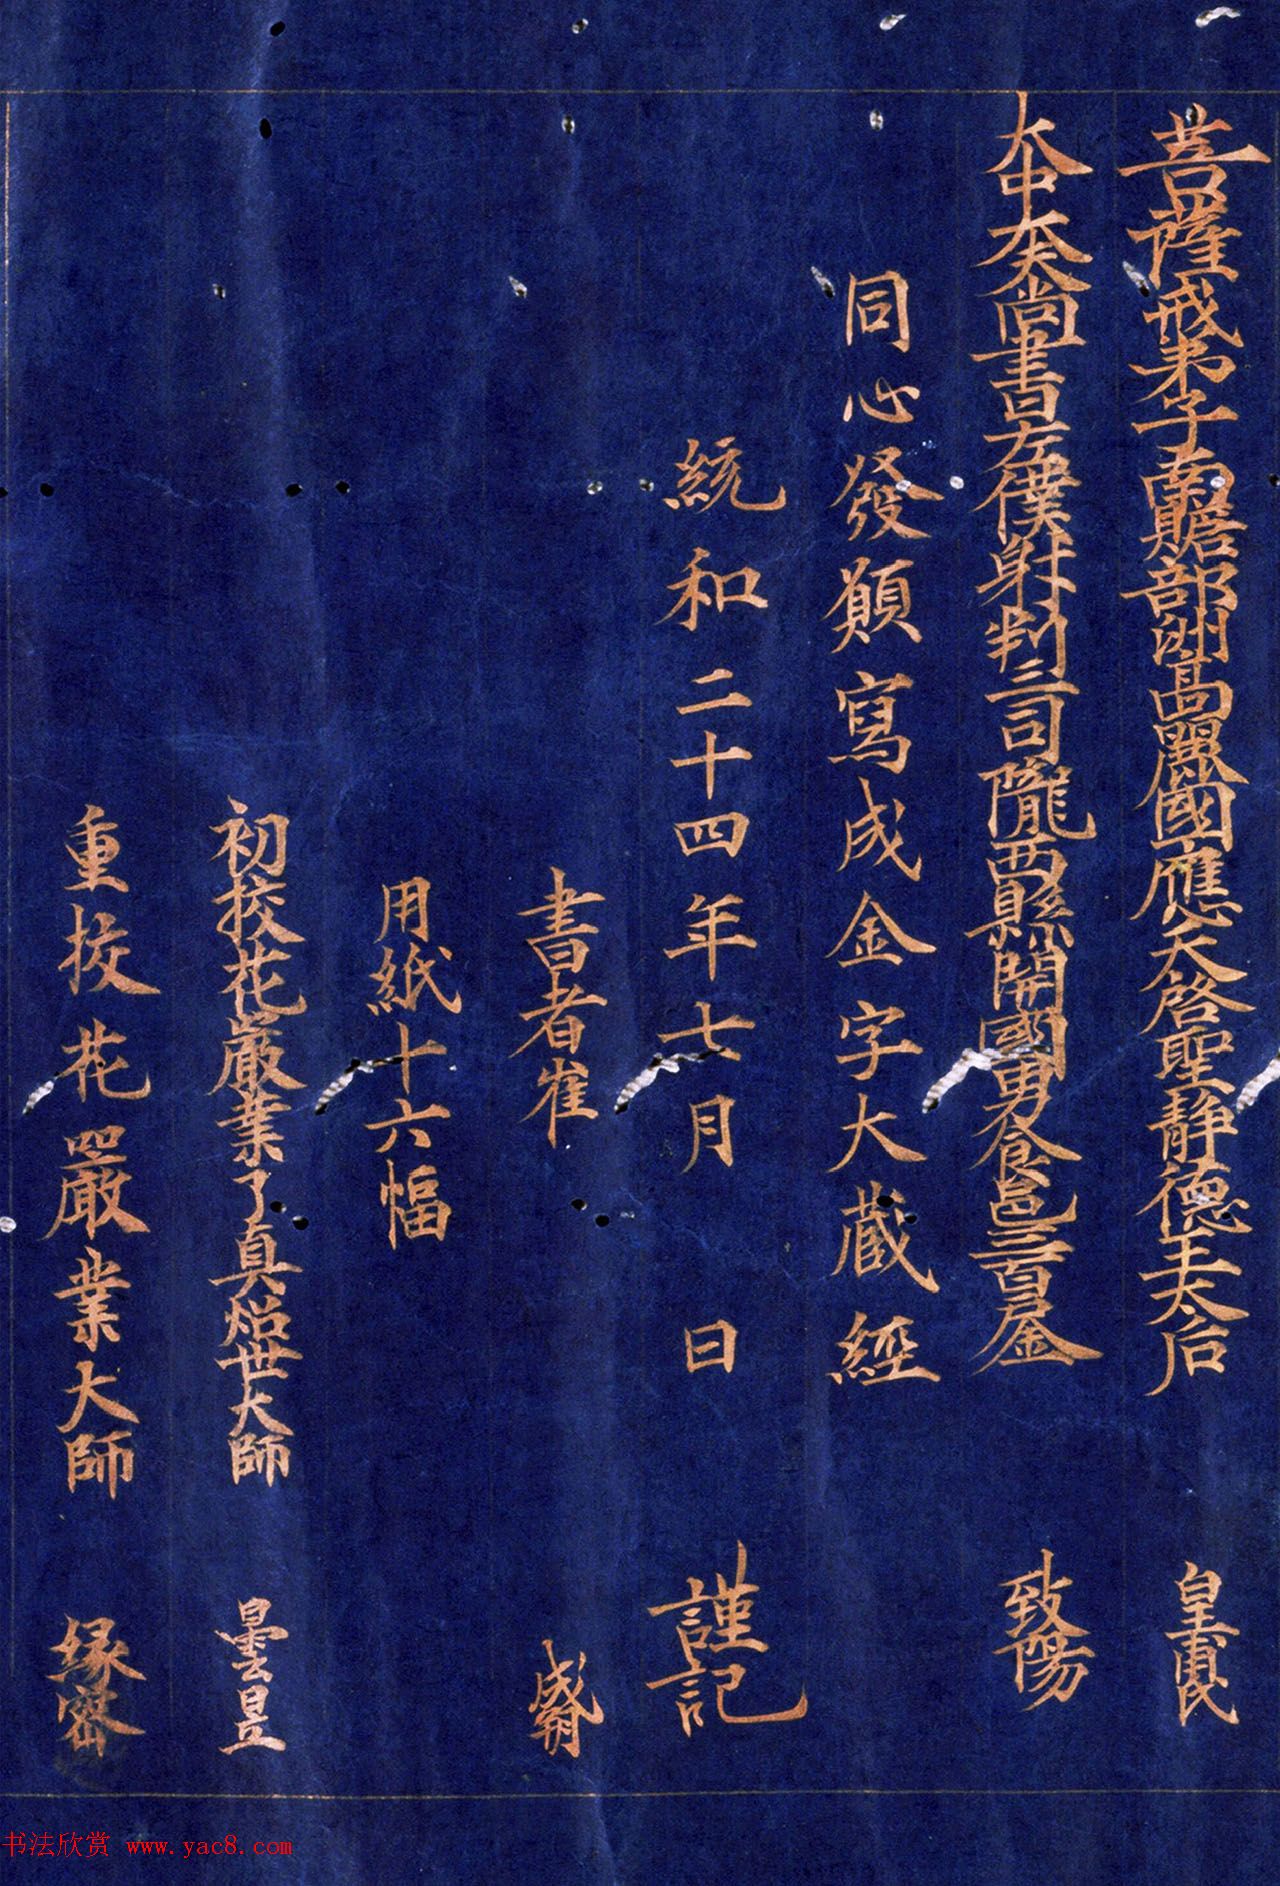 菩薩戒弟子南贍部洲高麗國應天啓聖靜德王太后 皇甫氏
大中大夫尚書左僕射判三司隴西縣開國男食邑三百金 致陽
同心發願寫成金字大蔵經
統和二十四年七月 日 謹記
書者崔
用紙十六幅
初校花嚴業了真炤世大師 曇昱
重挍花嚴業大師 縁密
书法欣赏 www.yac8.com